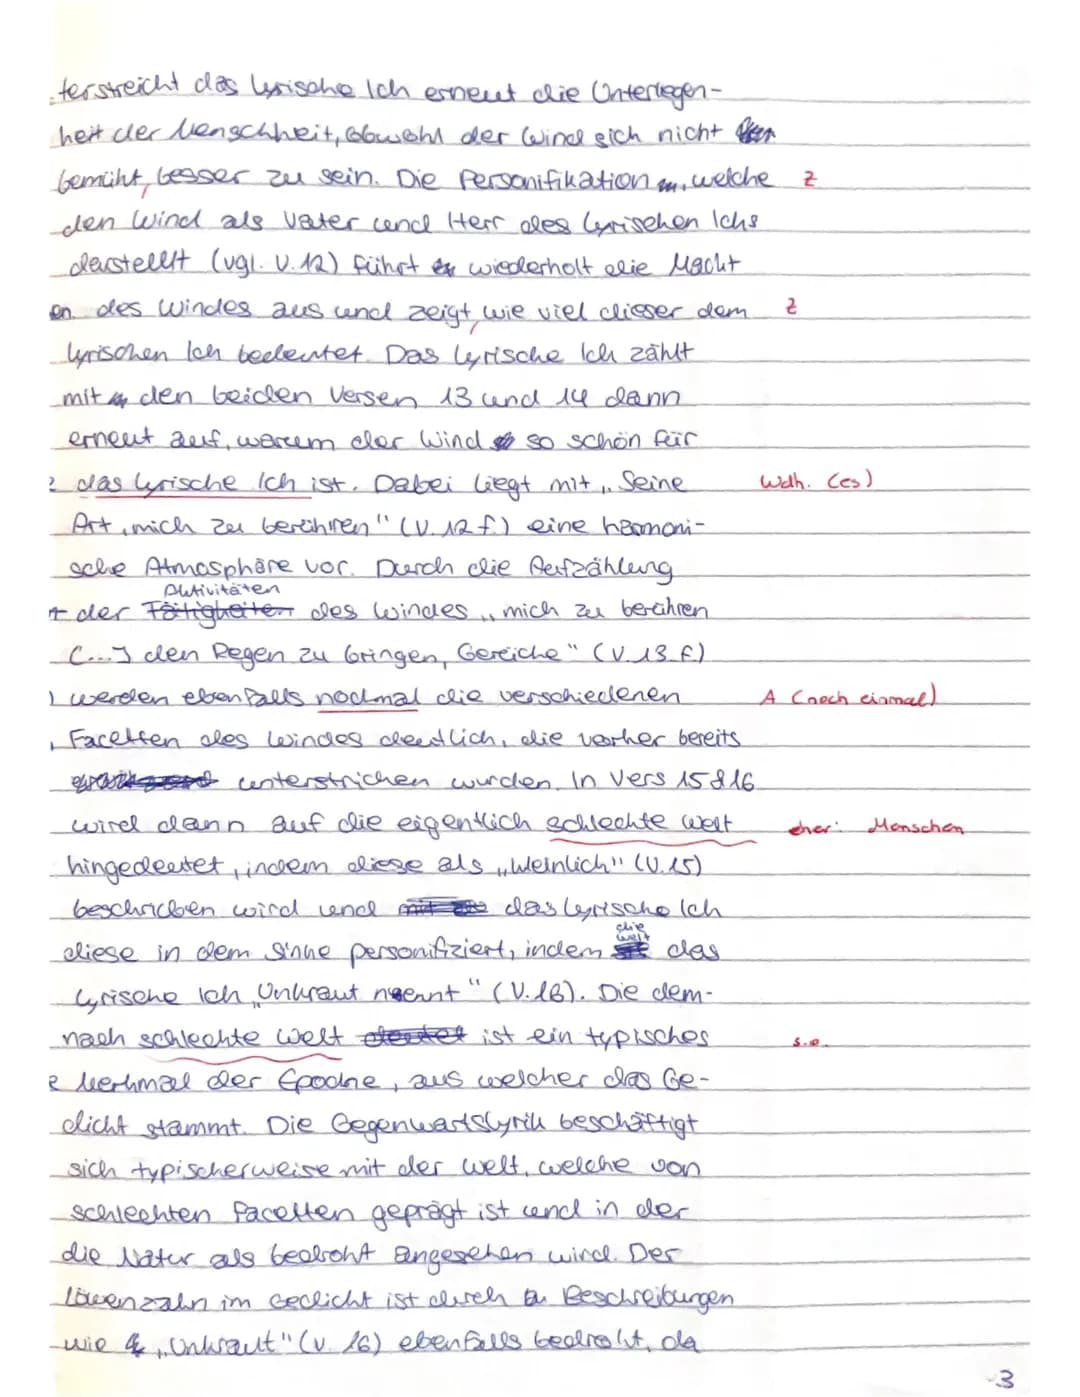 terstreicht das lyrische Ich erneut die Unterlegen-
heit der Menschheit, obwohl der Wind sich nicht
bemüht, besser zu sein. Die Personifikation, welche z
den Wind als Vater und Herr des lyrischen Ichs
darstellt (vgl. V. 12) führt wiederholt die Macht
en des Windes aus und zeigt, wie viel dieser dem z
lyrischen Ich bedeutet. Das lyrische Ich zählt
mit den beiden Versen 13 und 14 dann
erneut auf, warum der Wind so schön für
das lyrische Ich ist. Dabei liegt mit „Seine Wdh. (es)
Art, mich zu berühren" (V. 12 f.) eine harmoni-
sche Atmosphäre vor. Durch die Aufzählung
Aktivitäten
der Tätigkeiten des Windes „mich zu berühren
[...] den Regen zu bringen, Gerüche" (V. 13 f.)
werden ebenfalls nochmal die verschiedenen A (noch einmal)
Facetten des Windes deutlich, die vorher bereits
unterstrichen wurden. In Vers 15 & 16
wird dann auf die eigentlich schlechte Welt eher: Menschen
hingedeutet, indem diese als „Weinlich" (V. 15)
beschrieben wird und das lyrische Ich
die
Welt
diese in dem Sinne personifiziert, indem das
lyrische Ich „Unkraut nennt" (V. 16). Die dem-
nach schlechte Welt ist ein typisches s.o.
Merkmal der Epoche, aus welcher das Ge-
dicht stammt. Die Gegenwartslyrik beschäftigt
sich typischerweise mit der Welt, welche von
schlechten Facetten geprägt ist und in der
die Natur als bedroht angesehen wird. Der
Löwenzahn im Gedicht ist durch Beschreibungen
wie „Unkraut" (V. 16) ebenfalls bedroht, da
3